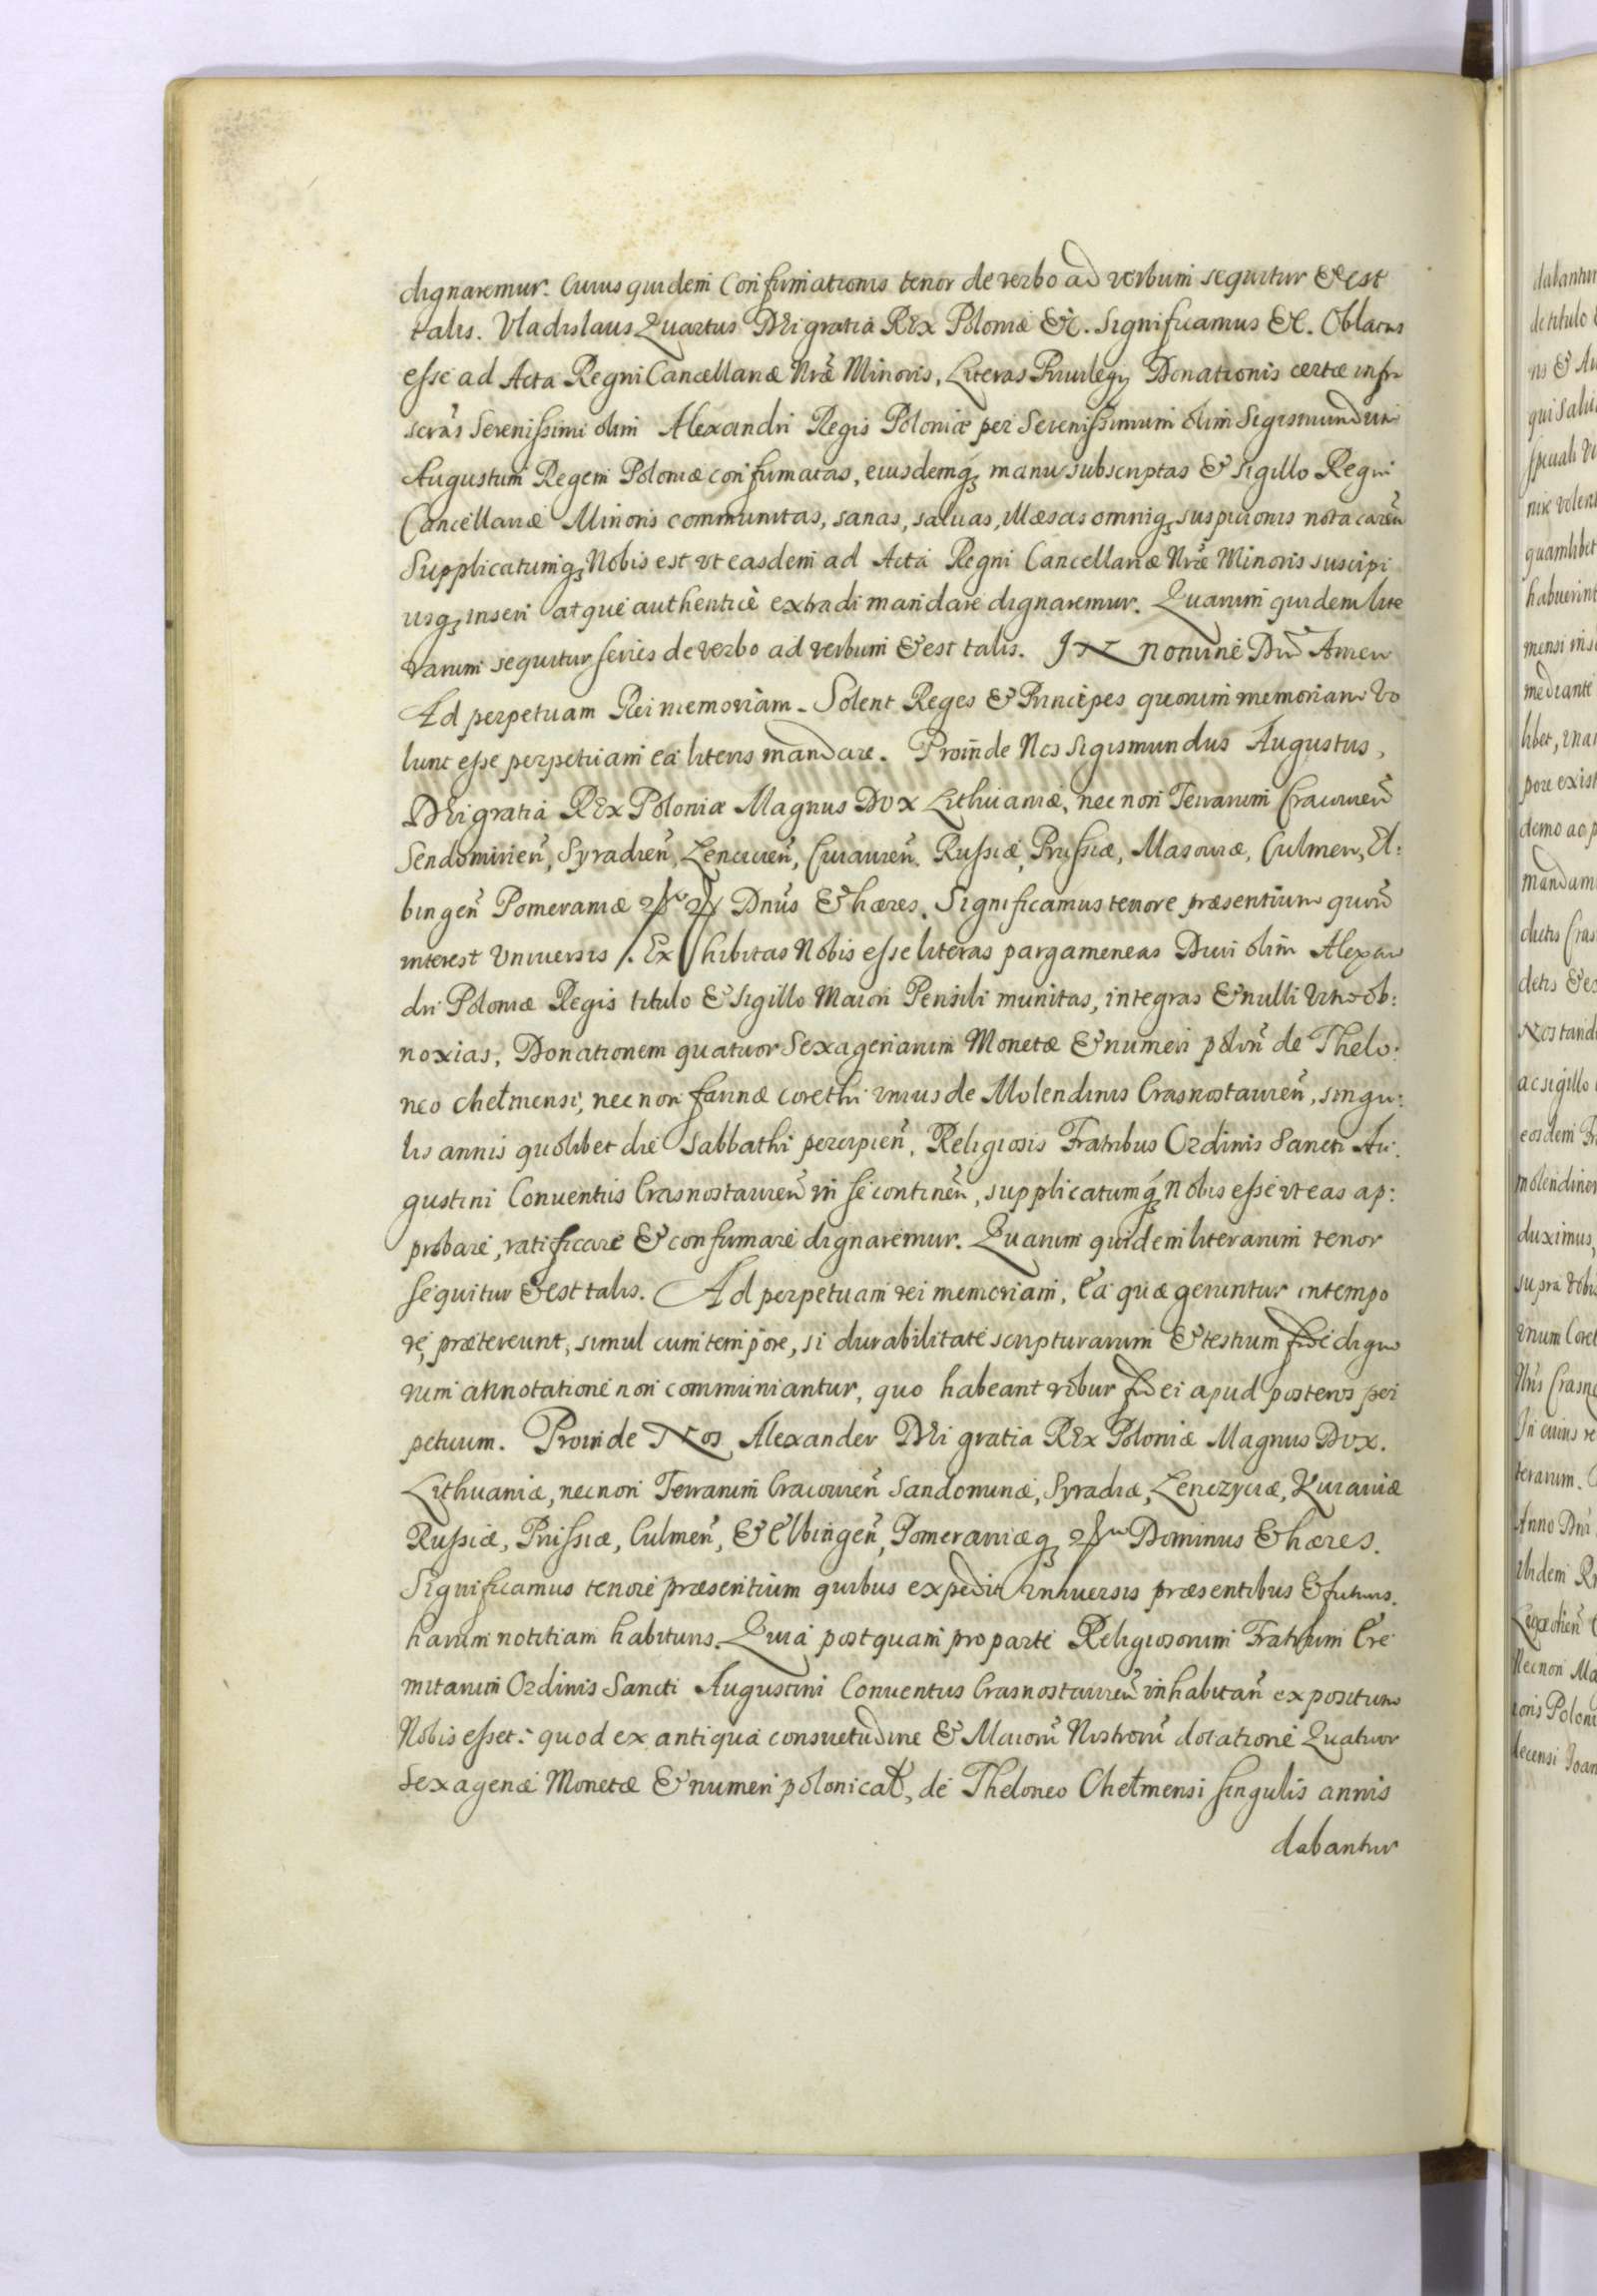 dignaremur. Cuius quidem Confirmationis tenor de verbo ad verbum sequitur & est
talis. Vladislaus Quartus DEi gratia REx Poloniæ &c. Significamus &c. Oblatas
esse ad Acta Regni Cancellariæ Nr̃æ Minoris, Literas Priuilegij Donationis certæ infra
scr̃as Serenissimi olim Alexandri Regis Poloniæ per Serenissimum olim Sigismundum
Augustum Regem Poloniæ confirmatas, eiusdemq́ꝫ manu subscriptas & Sigillo Regni
Cancellariæ Minoris communitas, sanas, saluas, illæsas omniqꝫ suspicionis nota careñ
Supplicatumqꝫ Nobis est vt easdem ad Acta Regni Cancellariæ Nr̃æ Minoris suscipi
ijsqꝫ inseri atque authenticè extradi mandare dignaremur. Quarum quidem lite
rarum sequitur series de verbo ad verbum & est talis. IN nomine Dnĩ Amen
Ad perpetuam Rei memoriam. Solent Reges & Principes quorum memoriam vo
lunt esse perpetuam ea literis mandare. Proinde Nos Sigismundus Augustus,
DEi gratia REx Poloniæ Magnus Dvx Lithuaniæ, nec non Terrarum Cracouieñ
Sendomirieñ, Syradieñ, Lencicieñ, Cuiauieñ, Russiæ, Prussiæ, Masouiæ, Culmeñ, El:
bingeñ Pomeraniæ Dnũs & hæres. Significamus tenore præsentium quorũ
interest Vniuersis. Exhibitas Nobis esse literas pargameneas Diui olim Alexan
dri Poloniæ Regis titulo & Sigillo Maiori Pensili munitas, integras & nulli vitio ob:
noxias, Donationem quatuor Sexagenarum Monetæ & numeri poloñ de Thelo:
neo chełmensi, nec non farinæ corethi vnius de Molendinis Crasnostauieñ, singu:
lis annis quolibet die Sabbathi percipieñ, Religiosis Fratribus Ordinis Sancti Au:
gustini Conuentus Crasnostauieñ in se contineñ, supplicatumq́ꝫ Nobis esse vt eas ap:
probare, ratificare & confirmare dignaremur. Quarum quidem literarum tenor
sequitur & est talis. Ad perpetuam rei memoriam, Ea quæ geruntur in tempo
re, prætereunt, simul cum tempore, si durabilitate scripturarum & testium fide digno
rum annotatione non communiantur, quo habeant robur fidei apud posteros per
petuum. Proinde Nos Alexander DEi gratia REx Poloniæ Magnus Dvx.
Lithuaniæ, nec non Terrarum Cracouieñ Sandomiriæ, Syradiæ, Lenczyciæ, Kuiauiæ
Russiæ, Prussiæ, Culmeñ, & Elbingeñ, Pomeraniæqꝫ Dominus & hæres.
Significamus tenore præsentium quibus expedit vniuersis præsentibus & futuris.
harum notitiam habituris. Quia postquam pro parte Religiosorum Fratrum Ere
mitarum Ordinis Sancti Augustini Conuentus Crasnostauieñ inhabitañ expositum
Nobis esset: quod ex antiqua consuetudine & Maiorũ Nostrorũ dotatione Quatuor
Sexagenæ Monetæ & numeri polonical, de Theloneo Chełmensi singulis annis
dabantur